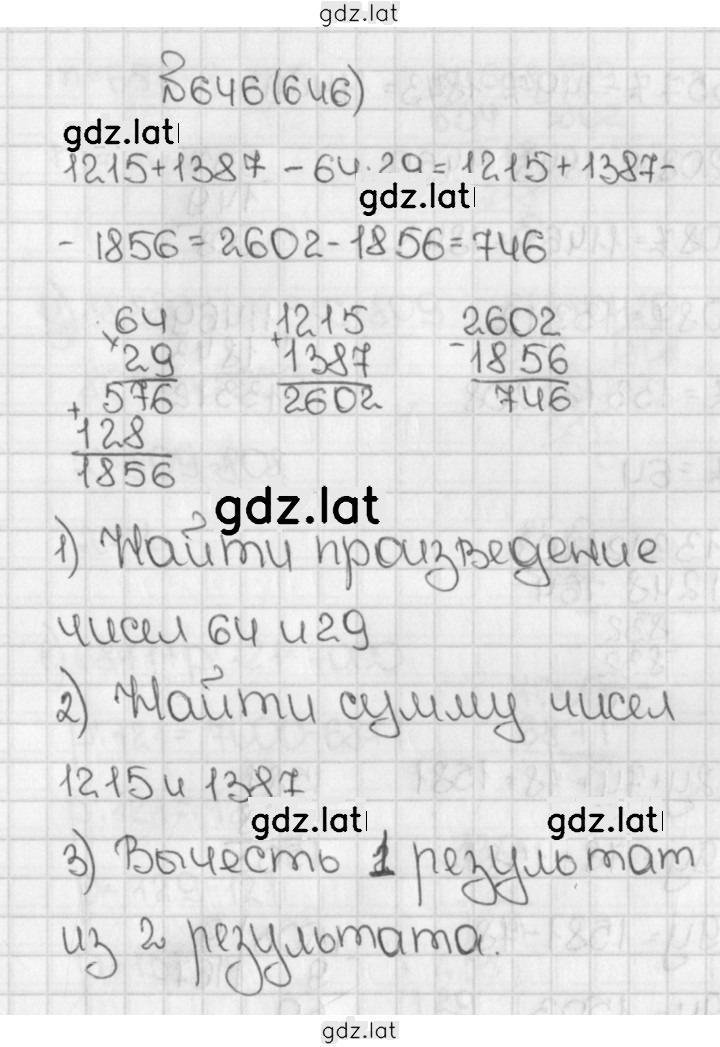 gdz.lat
№646(646)
gdz.lat
1215+1387 - 64·29=1215+1387-
gdz.lat
- 1856=2602-1856=746
64 1215 2602
× 29 + 1387 - 1856
576 2602 746
+ 128
1856
gdz.lat
1) Найти произведение
чисел 64 и 29
2) Найти сумму чисел
1215 и 1387
gdz.lat gdz.lat
3) Вычесть 1 результат
из 2 результата.
gdz.lat